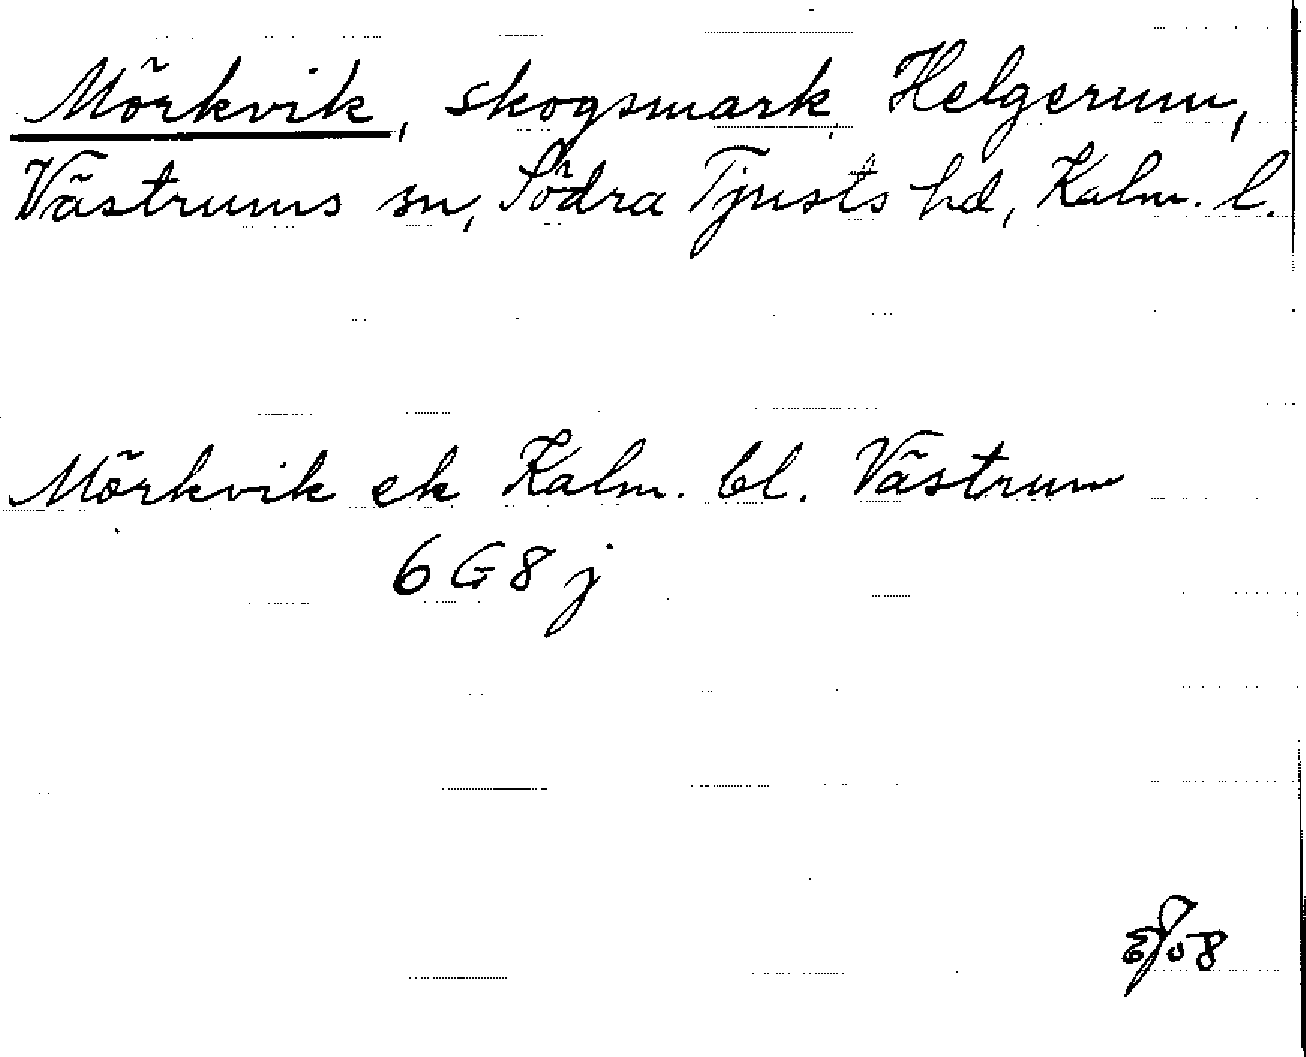 Mörkvik, skogsmark, Helgerum,
Västrums sn, Södra Tjusts hd, Kalm. l.
Mörkvik ek Kalm. bl. Västrum
6 G 8 j